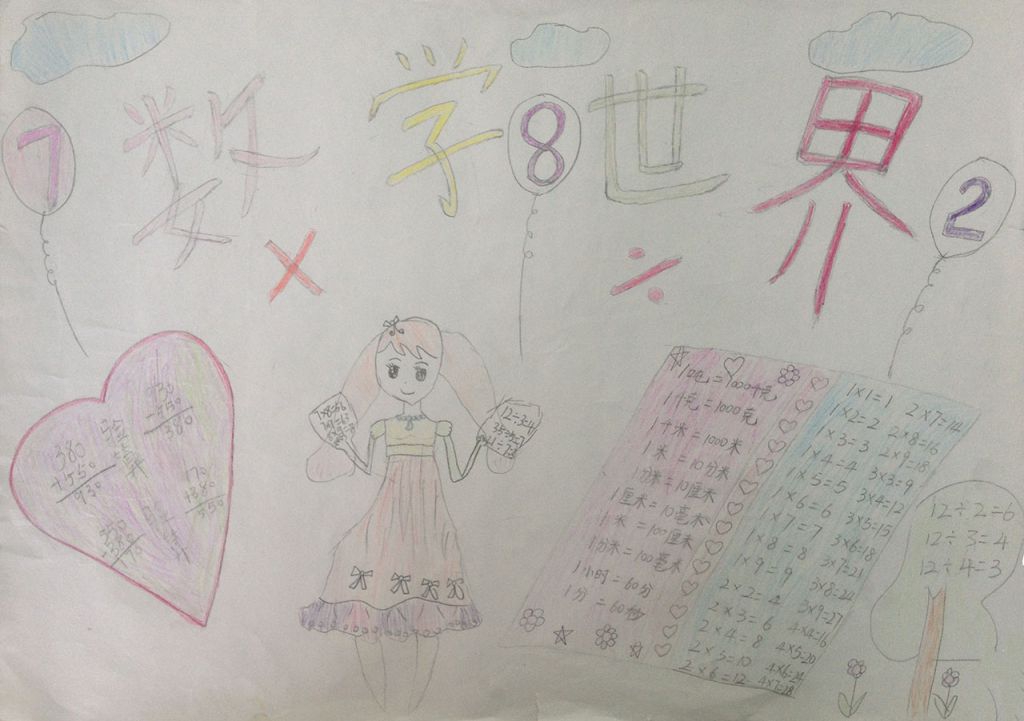 数学世界
7
8
2
×
÷
380
+550
930
验
算
930
-550
380
170
+380
550
12÷3=4
1吨=1000千克
1千克=1000克
1千米=1000米
1米=10分米
1分米=10厘米
1厘米=10毫米
1米=100厘米
1分米=100毫米
1小时=60分
1分=60秒
1×1=1 2×7=14
1×2=2 2×8=16
1×3=3 2×9=18
1×4=4 3×3=9
1×5=5 3×4=12
1×6=6 3×5=15
1×7=7 3×6=18
1×8=8 3×7=21
1×9=9 3×8=24
2×2=4 3×9=27
2×3=6 4×4=16
2×4=8 4×5=20
2×5=10 4×6=24
2×6=12 4×7=28
12÷2=6
12÷3=4
12÷4=3